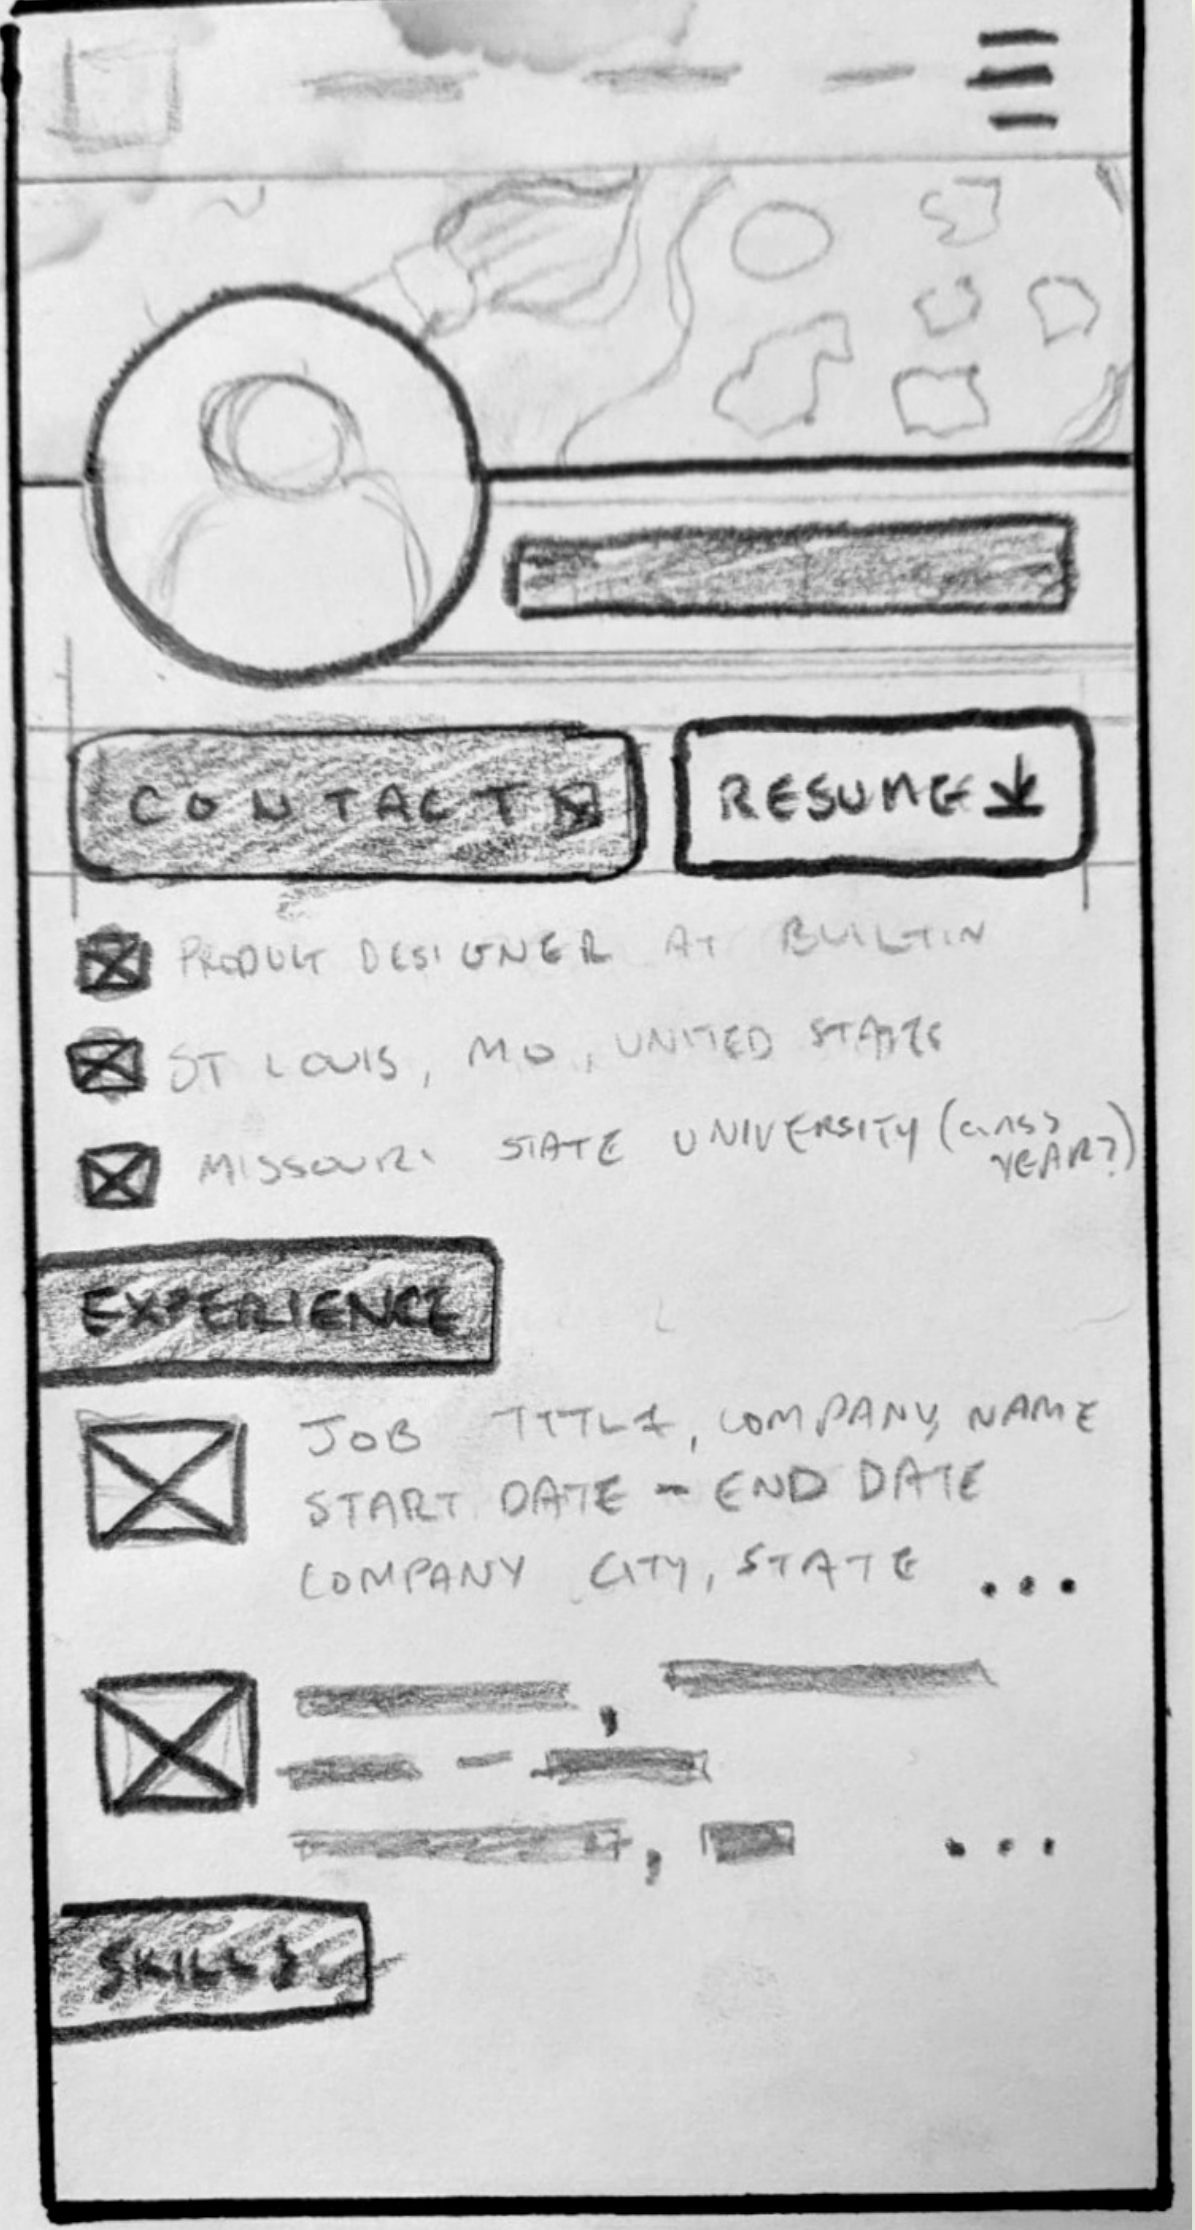 CONTACT
RESUME
PRODUCT DESIGNER AT BUILTIN
ST LOUIS, MO, UNITED STATES
MISSOURI STATE UNIVERSITY (CLASS
YEAR?)
EXPERIENCE
JOB TITLE, COMPANY NAME
START DATE - END DATE
COMPANY CITY, STATE ...
, 
-
, ...
SKILLS